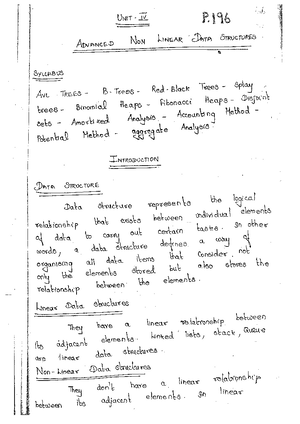 UNIT - IV
P.196
ADVANCED NON LINEAR DATA STRUCTURES
SYLLABUS
AVL TREES - B-Trees - Red-Black Trees - Splay
trees - Binomial Heaps - Fibonacci Heaps - Disjoint
Sets - Amortized Analysis - Accounting Method -
Potential Method - aggregate Analysis.
INTRODUCTION
DATA STRUCTURE
Data structure represents the logical
relationship that exists between individual elements
of data to carry out certain tasks. In other
words, a data structure defines a way of
organising all data items that consider not
only the elements stored but also stores the
relationship between the elements.
Linear Data structures
They have a linear relationship between
its adjacent elements. Linked lists, stack, Queue
are linear data structures.
Non-Linear Data structures
They don't have a linear relationship
between its adjacent elements. In linear